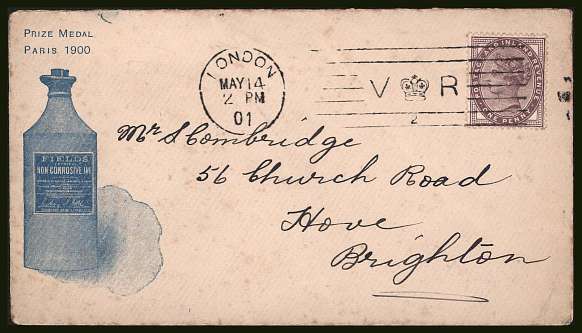 PRIZE MEDAL
PARIS 1900
LONDON
MAY 14
2 PM
01
V R
2
POSTAGE AND INLAND REVENUE
ONE PENNY
FIELDS
NON CORROSIVE INK
Mr S Combridge
56 Church Road
Hove
Brighton